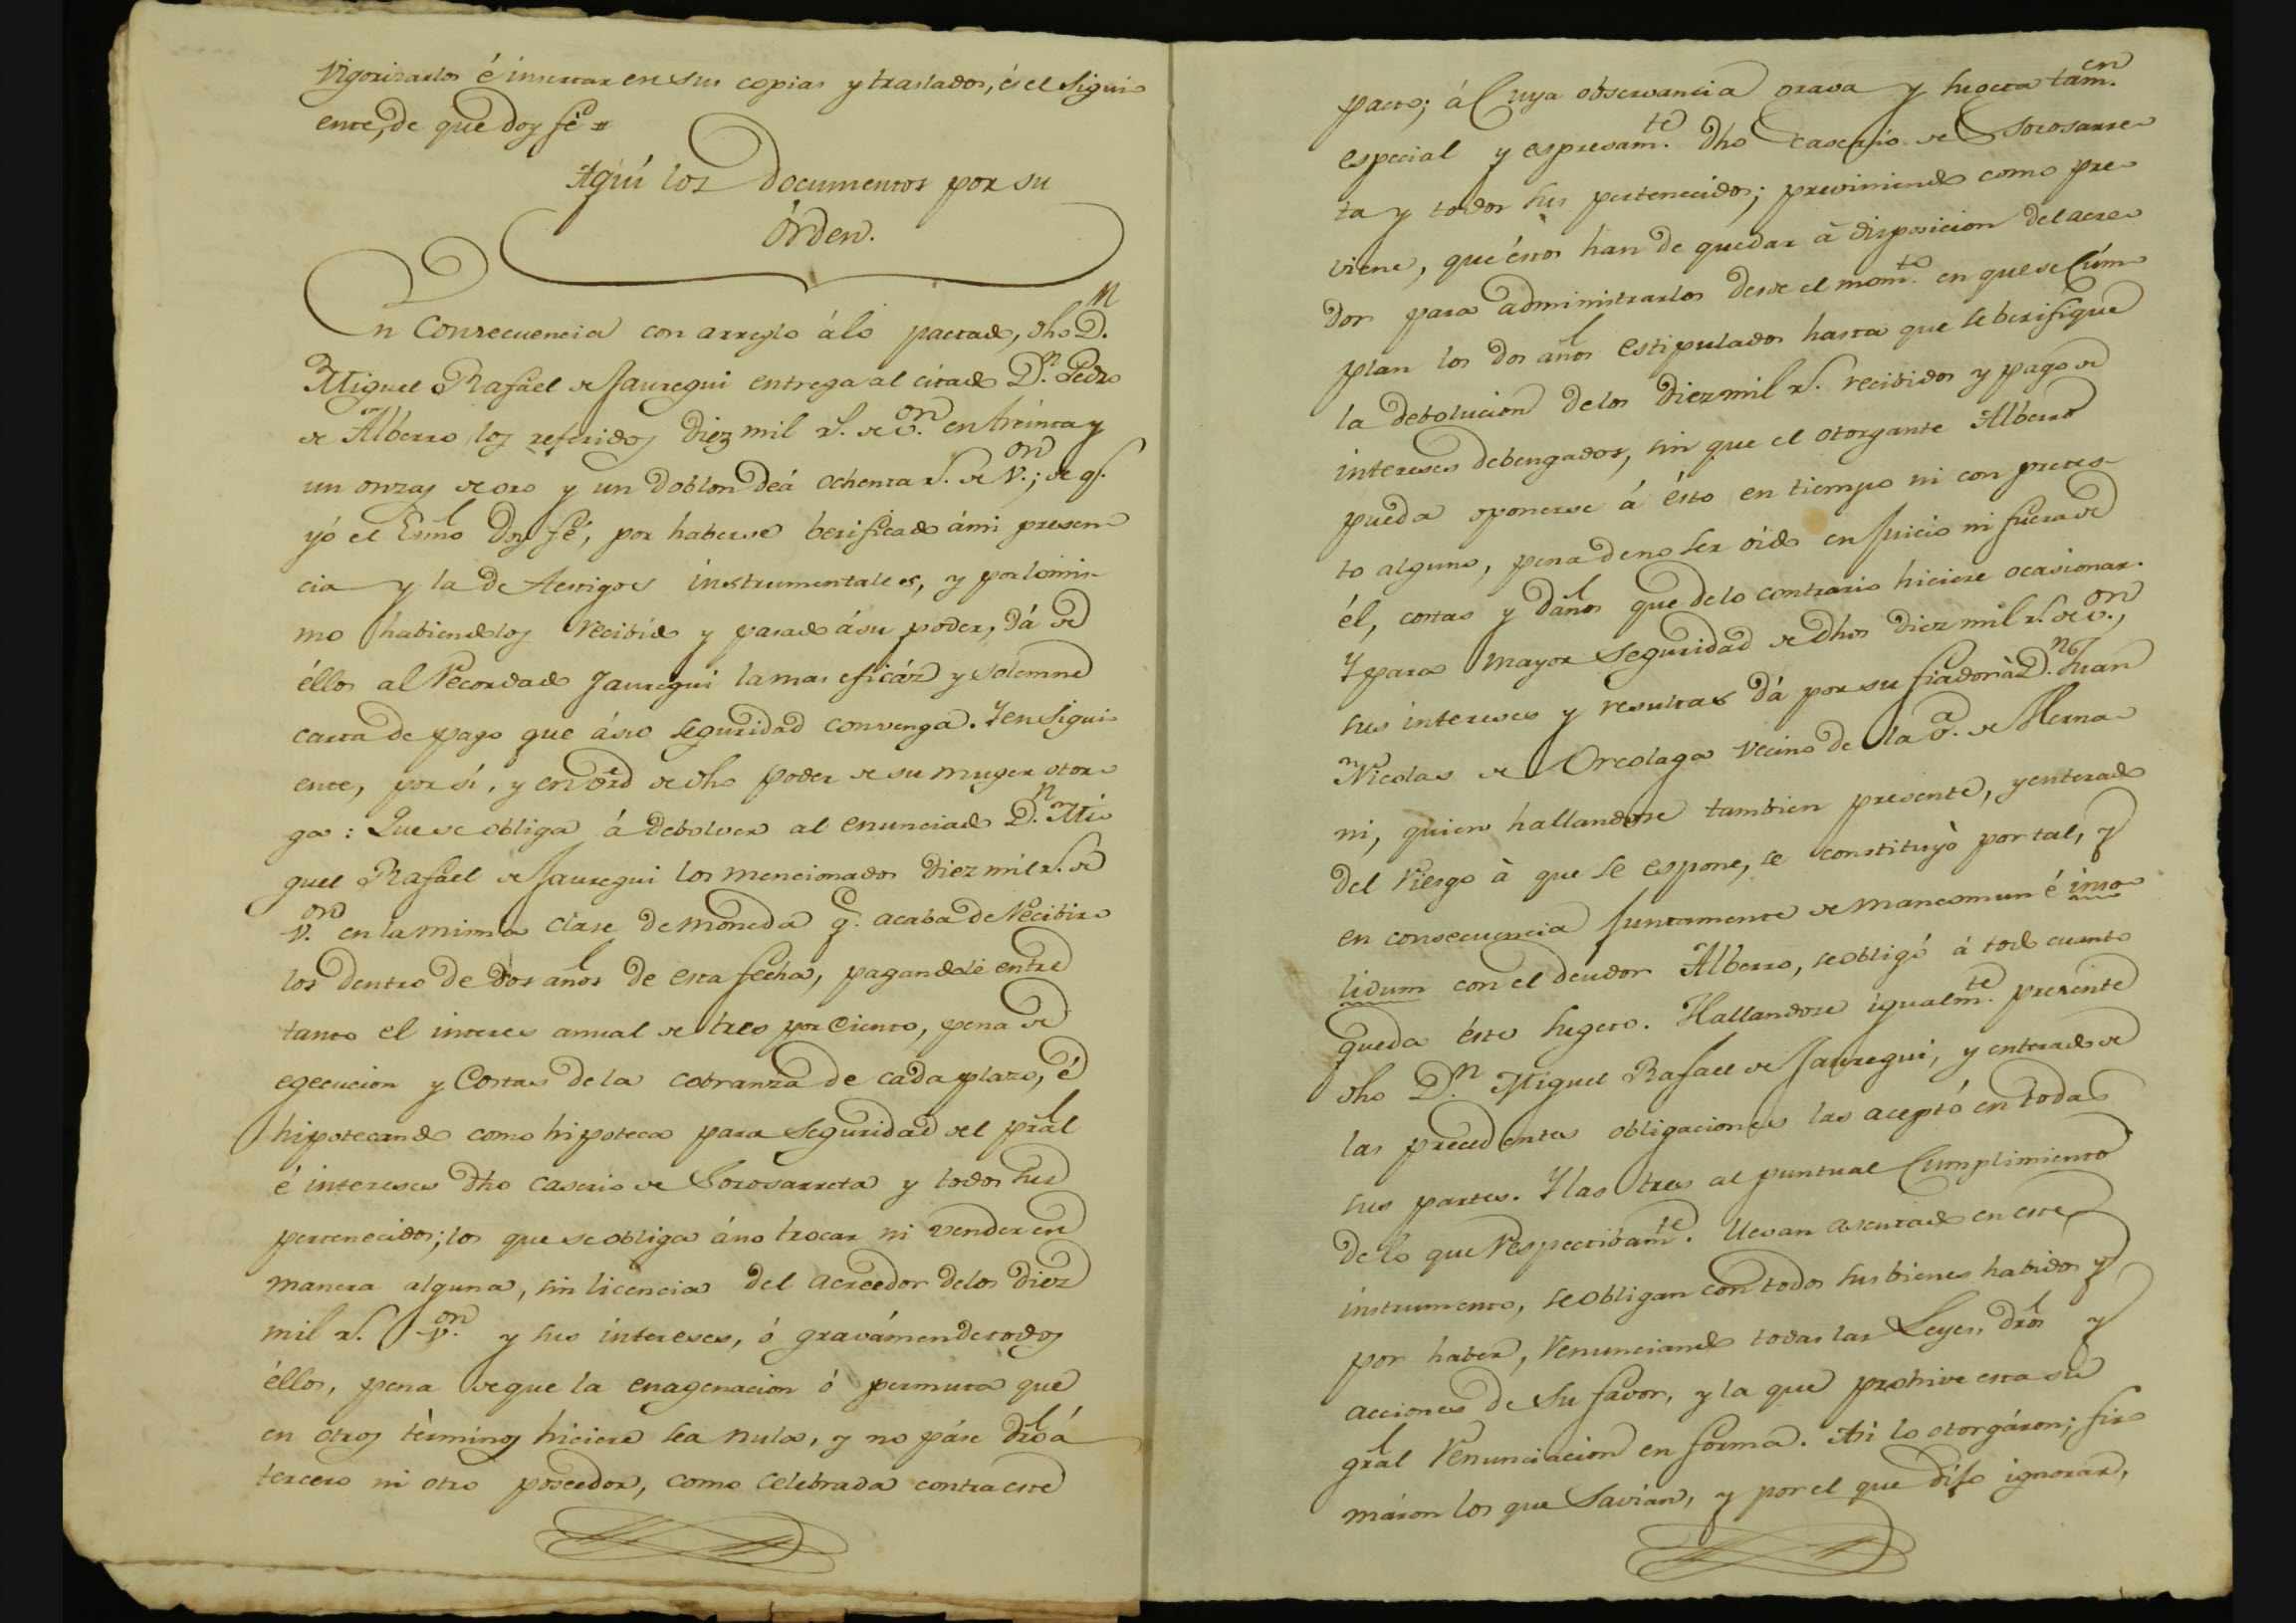 vigorizarlos é insertar en sus copias y traslados, és el sigui-
ente, de que doy fé =
Aquí los Documentos por su
Órden.
En Consecuencia con arreglo á lo pactado, dho D.n
Miguel Rafael de Jauregui entrega al citado D.n Pedro
de Alberro los referidos Diez mil r.s de v.on en treinta y
un onzas de oro y un Doblon de á ochenta r.s de v.on; de q.e
yó el Esnno Doy fé, por haberse berificado á mi presen-
cia y la de testigos instrumentales, y por lo mis-
mo habiendolos recibido y pasado á su poder, dá de
éllos al recordado Jauregui la mas eficáz y solemne
carta de pago que á su seguridad convenga. Y en sigui-
ente, por sí, y en vrd de dho poder de su muger otor-
ga: Que se obliga á debolver al enunciado D.n Mi-
guel Rafael de Jauregui los mencionados Diez mil r.s de
v.on en la misma clase de moneda q.e acaba de recibir-
los dentro de dos años de esta fecha, pagandole entre
tanto el interes annual de tres por Ciento, pena de
egecucion y Costas de la cobranza de cada plazo, é
hipotecando como hipoteca para seguridad del pral
é intereses dho caserio de Sorosarreta y todos sus
pertenecidos; los que se obliga á no trocar ni vender en
manera alguna, sin licencia del acreedor de los Diez
mil r.s v.on y sus intereses, ó gravámen de todos
éllos, pena de que la enagenacion ó permuta que
en otros tèrminos hiciere sea nula, y no páse dro á
tercero ni otro poseedor, como celebrada contra este
pacto; á Cuya observancia grava y sugeta tam.en
especial y espresam.te dho caserio de Sorosarre-
ta y todos sus pertenecidos; previniendo como pre-
viene, que éstos han de quedar à disposicion del acre-
dor para administrarlos desde el mom.to en que se Cúm-
plan los dos años estipulados hasta que se berifique
la debolucion de los Diez mil r.s recibidos y pago de
intereses debengados, sin que el otorgante Alberro
pueda oponerse á ésto en tiempo ni con pretes-
to alguno, pena de no ser oido en Juicio ni fuera de
él, costas y daños que de lo contrario hiciere ocasionar.
Y para mayor seguridad de dhos Diez mil r.s de v.on,
sus intereses y resultas dá por su fiador à D.n Juan
Nicolas de Orcolaga vecino de la v.a de Herna-
ni, quien hallandose tambien presente, y enterado
del riesgo à que se espone, se constituyò por tal, y
en consecuencia juntamente de mancomun é inso-
lidum con el deudor Alberro, se obligó á todo cuanto
queda éste sugeto. Hallandose igualm.te presente
dho D.n Miguel Rafael de Jauregui, y enterado de
las precedentes obligaciones las aceptó en todas
sus partes. Y las tres al puntual Cumplimiento
de lo que respectibam.te llevan asentado en este
instrumento, se obligan con todos sus bienes habidos y
por haber, renunciando todas las Leyes, dros y
acciones de su favor, y la que prohive esta su
gral renunciacion en forma. Asi lo otorgáron; fir-
máron los que savian, y por el que dijo ignorar,